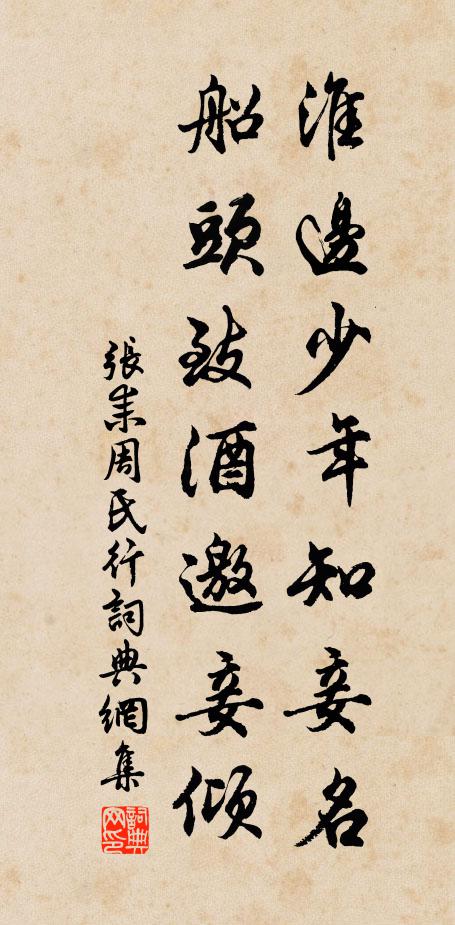 淮邊少年知妾名
船頭致酒邀妾傾
張耒周氏行詞典網集
詞典網印